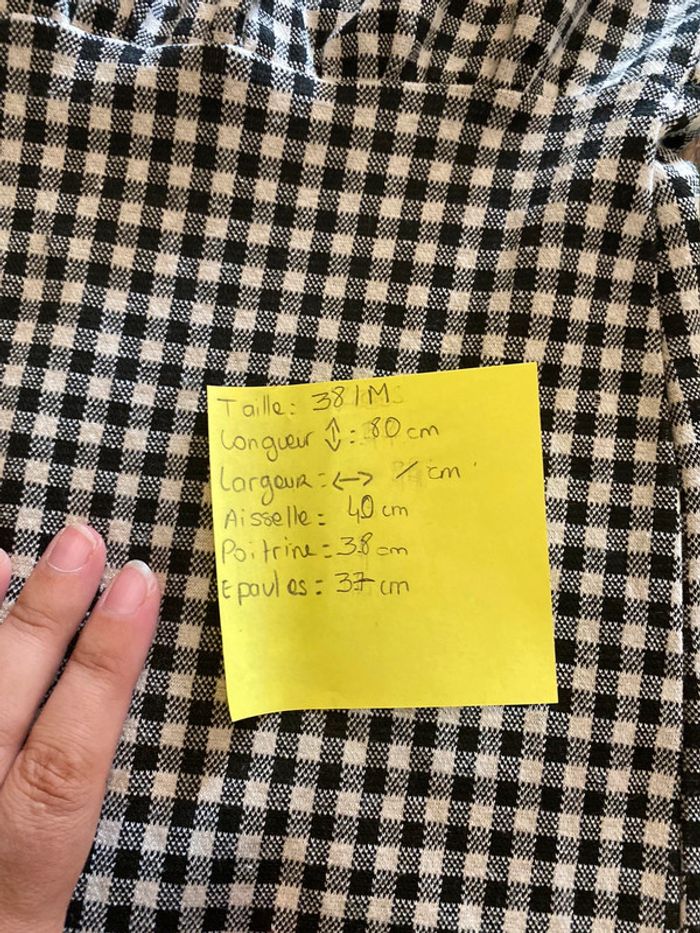 Taille : 38/M
Longueur ↕ : 80 cm
Largeur : ↔ / cm
Aisselle : 40 cm
Poitrine = 38 cm
Epaules : 37 cm